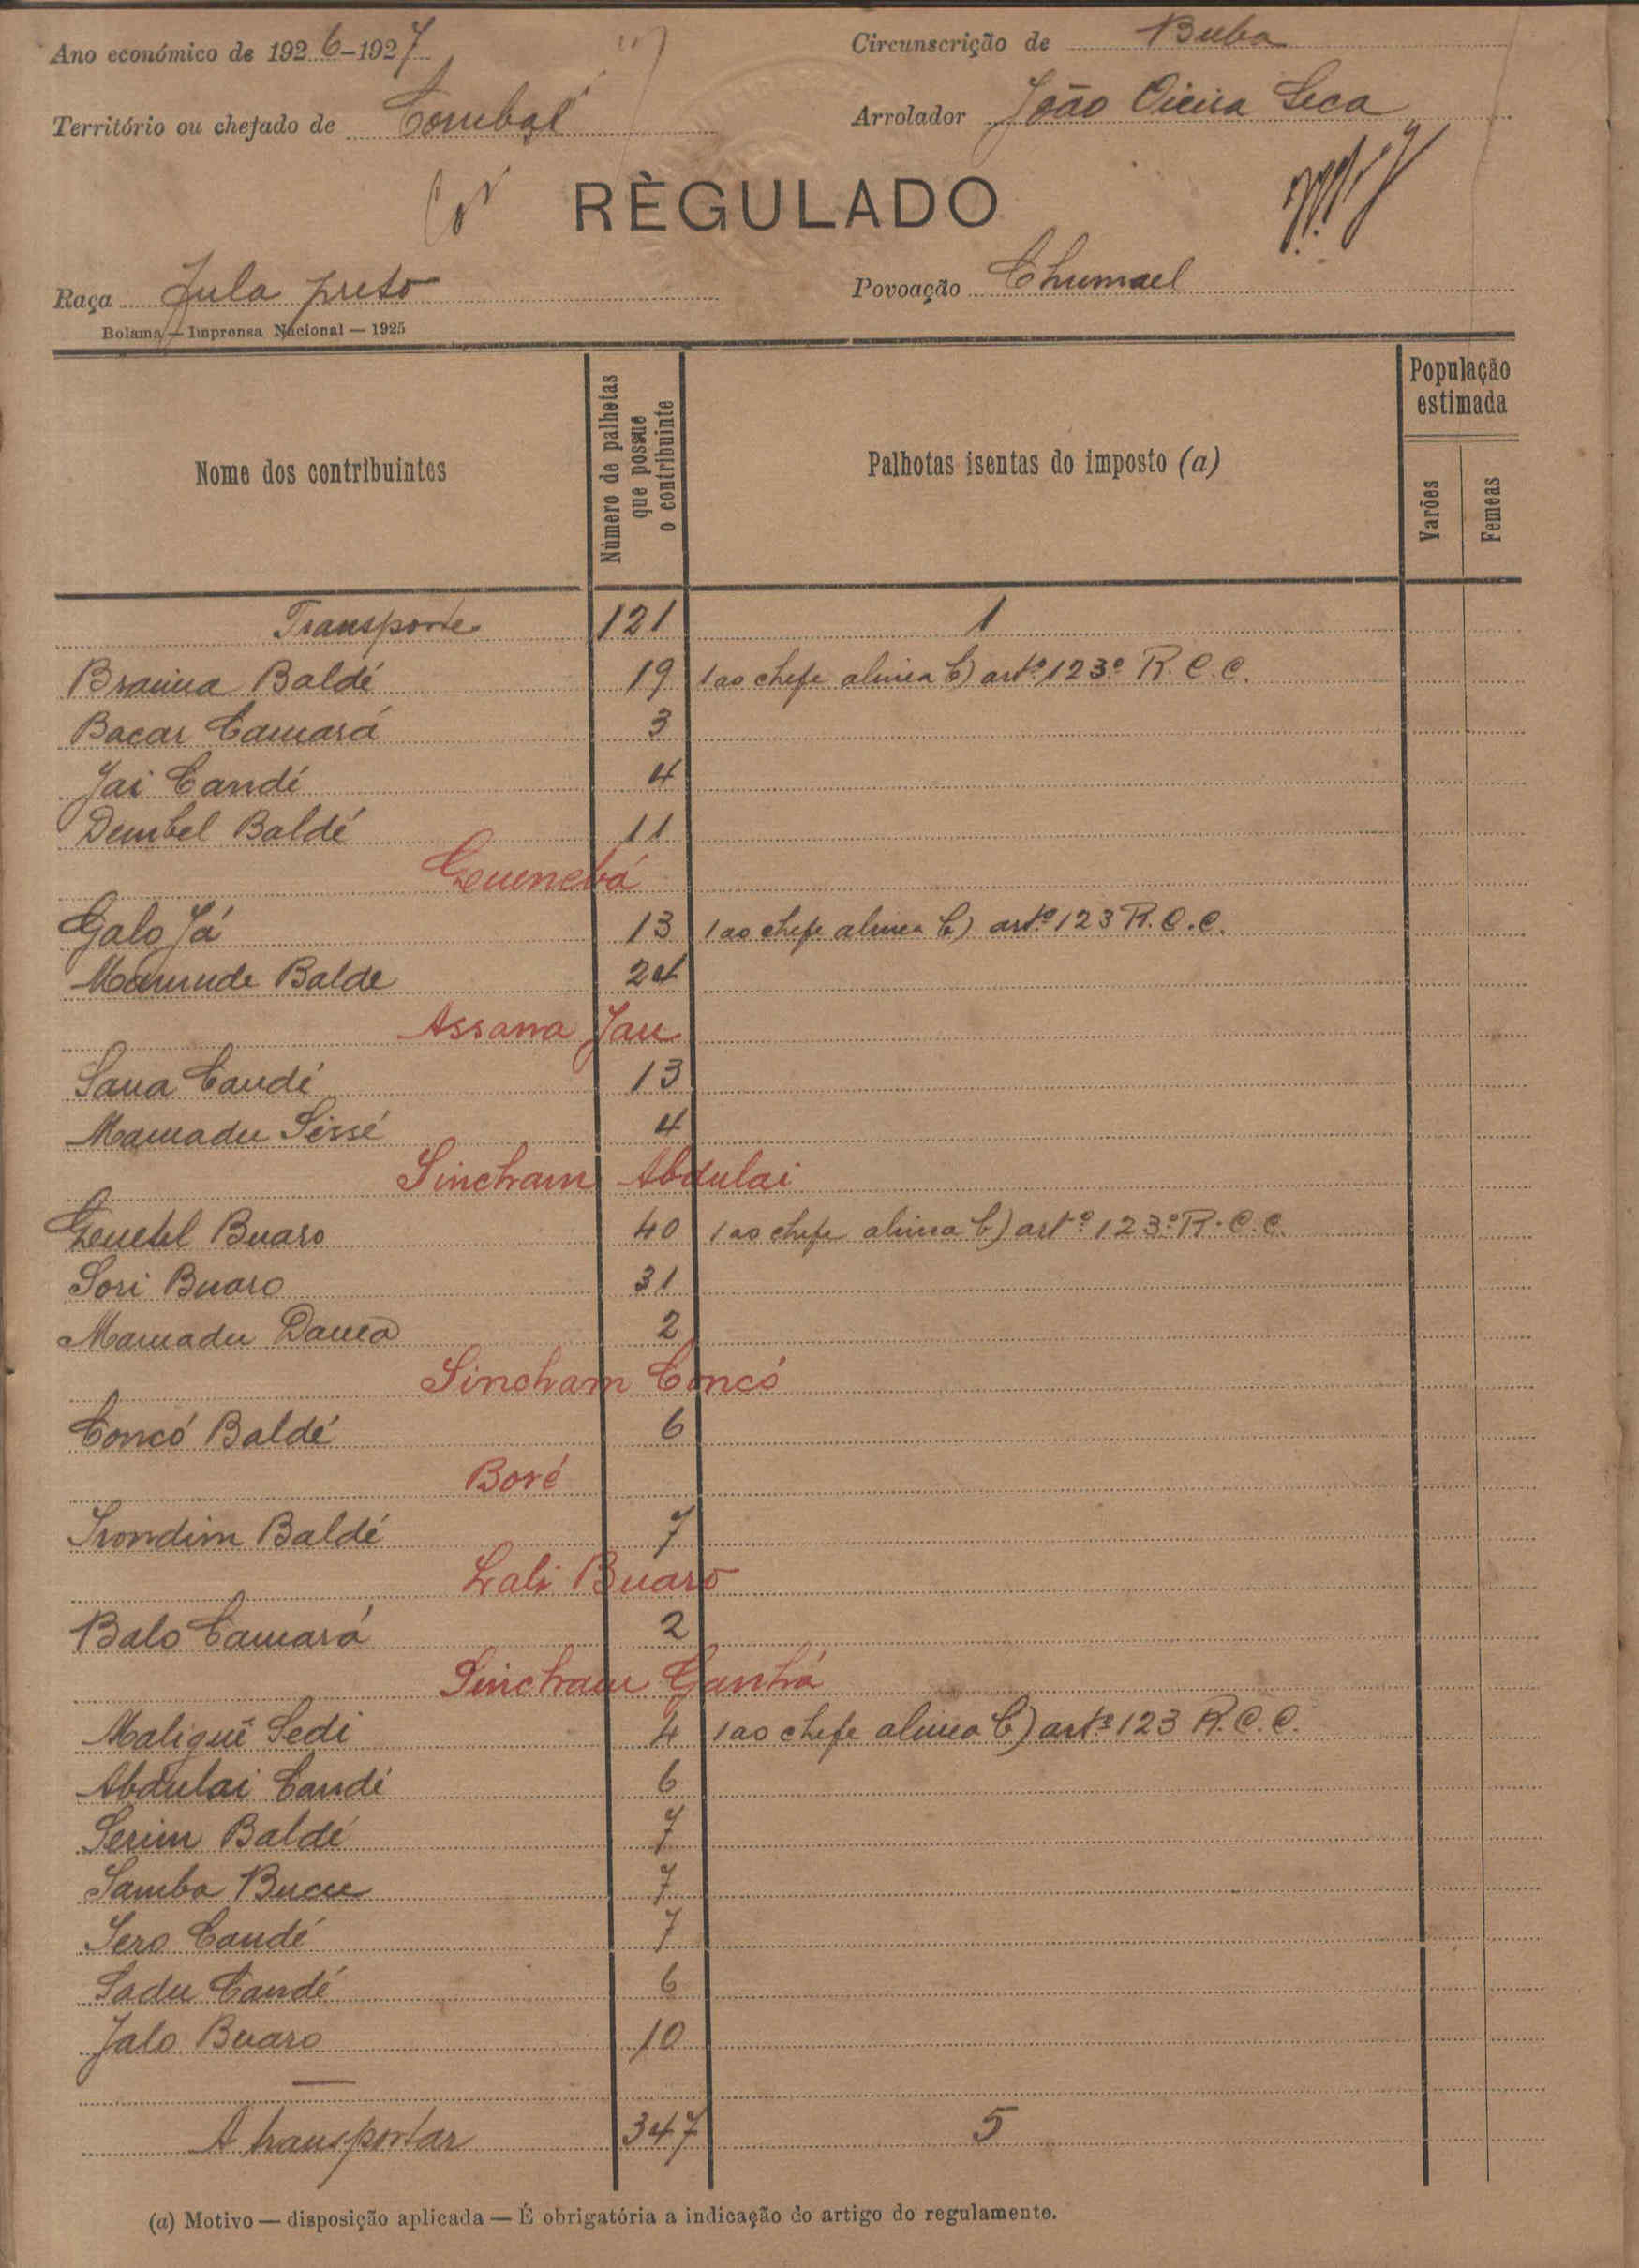 Ano económico de 1926-1927
Circunscrição de Buba
Território ou chefado de Combal
Arrolador João Vieira Seca
RÈGULADO
Raça Fula preto
Povoação Chumael
Bolama — Imprensa Nacional — 1925
Nome dos contribuintes
Número de palhotas que possue o contribuinte
Palhotas isentas do imposto (a)
População estimada
Varões
Femeas
Transporte 121 1
Braima Baldé 19 1 ao chefe alinea b) artº 123º R. C. C.
Bacar Camará 3
Jai Candé 4
Dembel Baldé 11
Galo Já 13 1 ao chefe alinea b) artº 123 R. C. C.
Mamude Balde 24
Assana Jau
Sana Candé 13
Mamadu Sissé 4
Sincham Abdulai
Buaro 40 1 ao chefe alinea b) artº 123º R. C. C.
Sori Buaro 31
Mamadu 2
Sincham Concó
Concó Baldé 6
Boré
Irondim Baldé 7
Lali Buaro
Balo Camará 2
Sincham Ganhá
Maliquê Sedi 4 1 ao chefe alinea b) artº 123 R. C. C.
Abdulai Candé 6
Serim Baldé 7
Samba 7
Sero Candé 7
Sadu Candé 6
Jalo Buaro 10
A transportar 347 5
(a) Motivo — disposição aplicada — É obrigatória a indicação do artigo do regulamento.